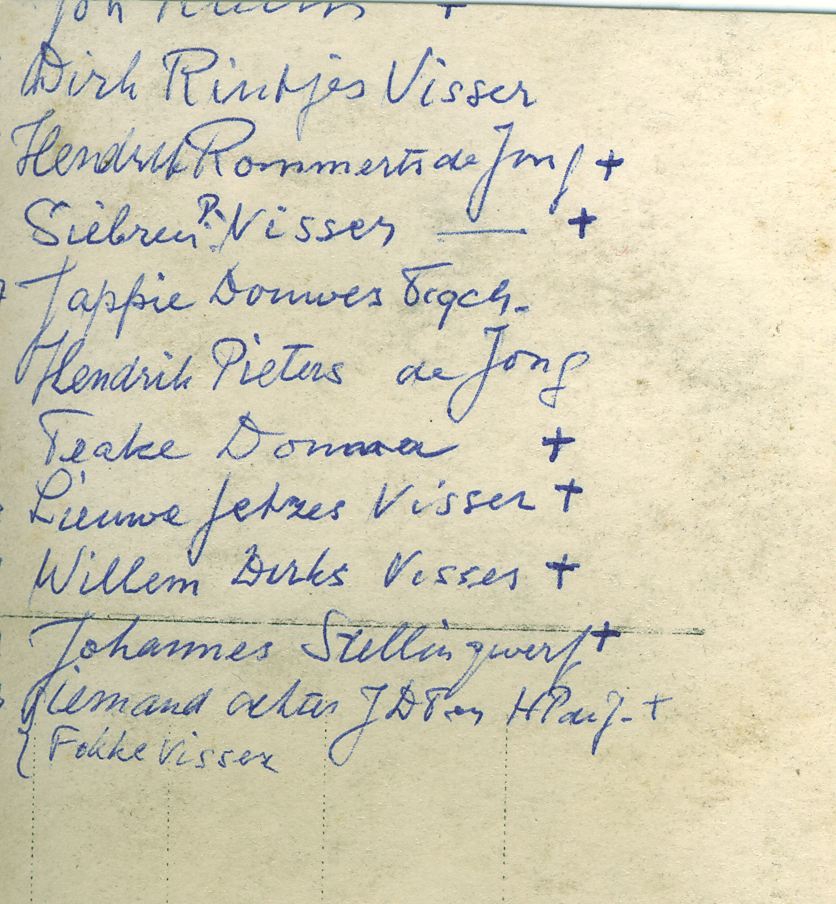 Dirk Rintjes Visser
Hendrik Rommerts de Jong +
Siebren P. Visser — +
Tappie Douwes
Hendrik Pieters de Jong
Teake Douma +
Lieuwe Jetzes Visser +
Willem Dirks Visser +
Johannes Stellingwerf +
iemand achter J D T en H P de J. +
Fokke Visser